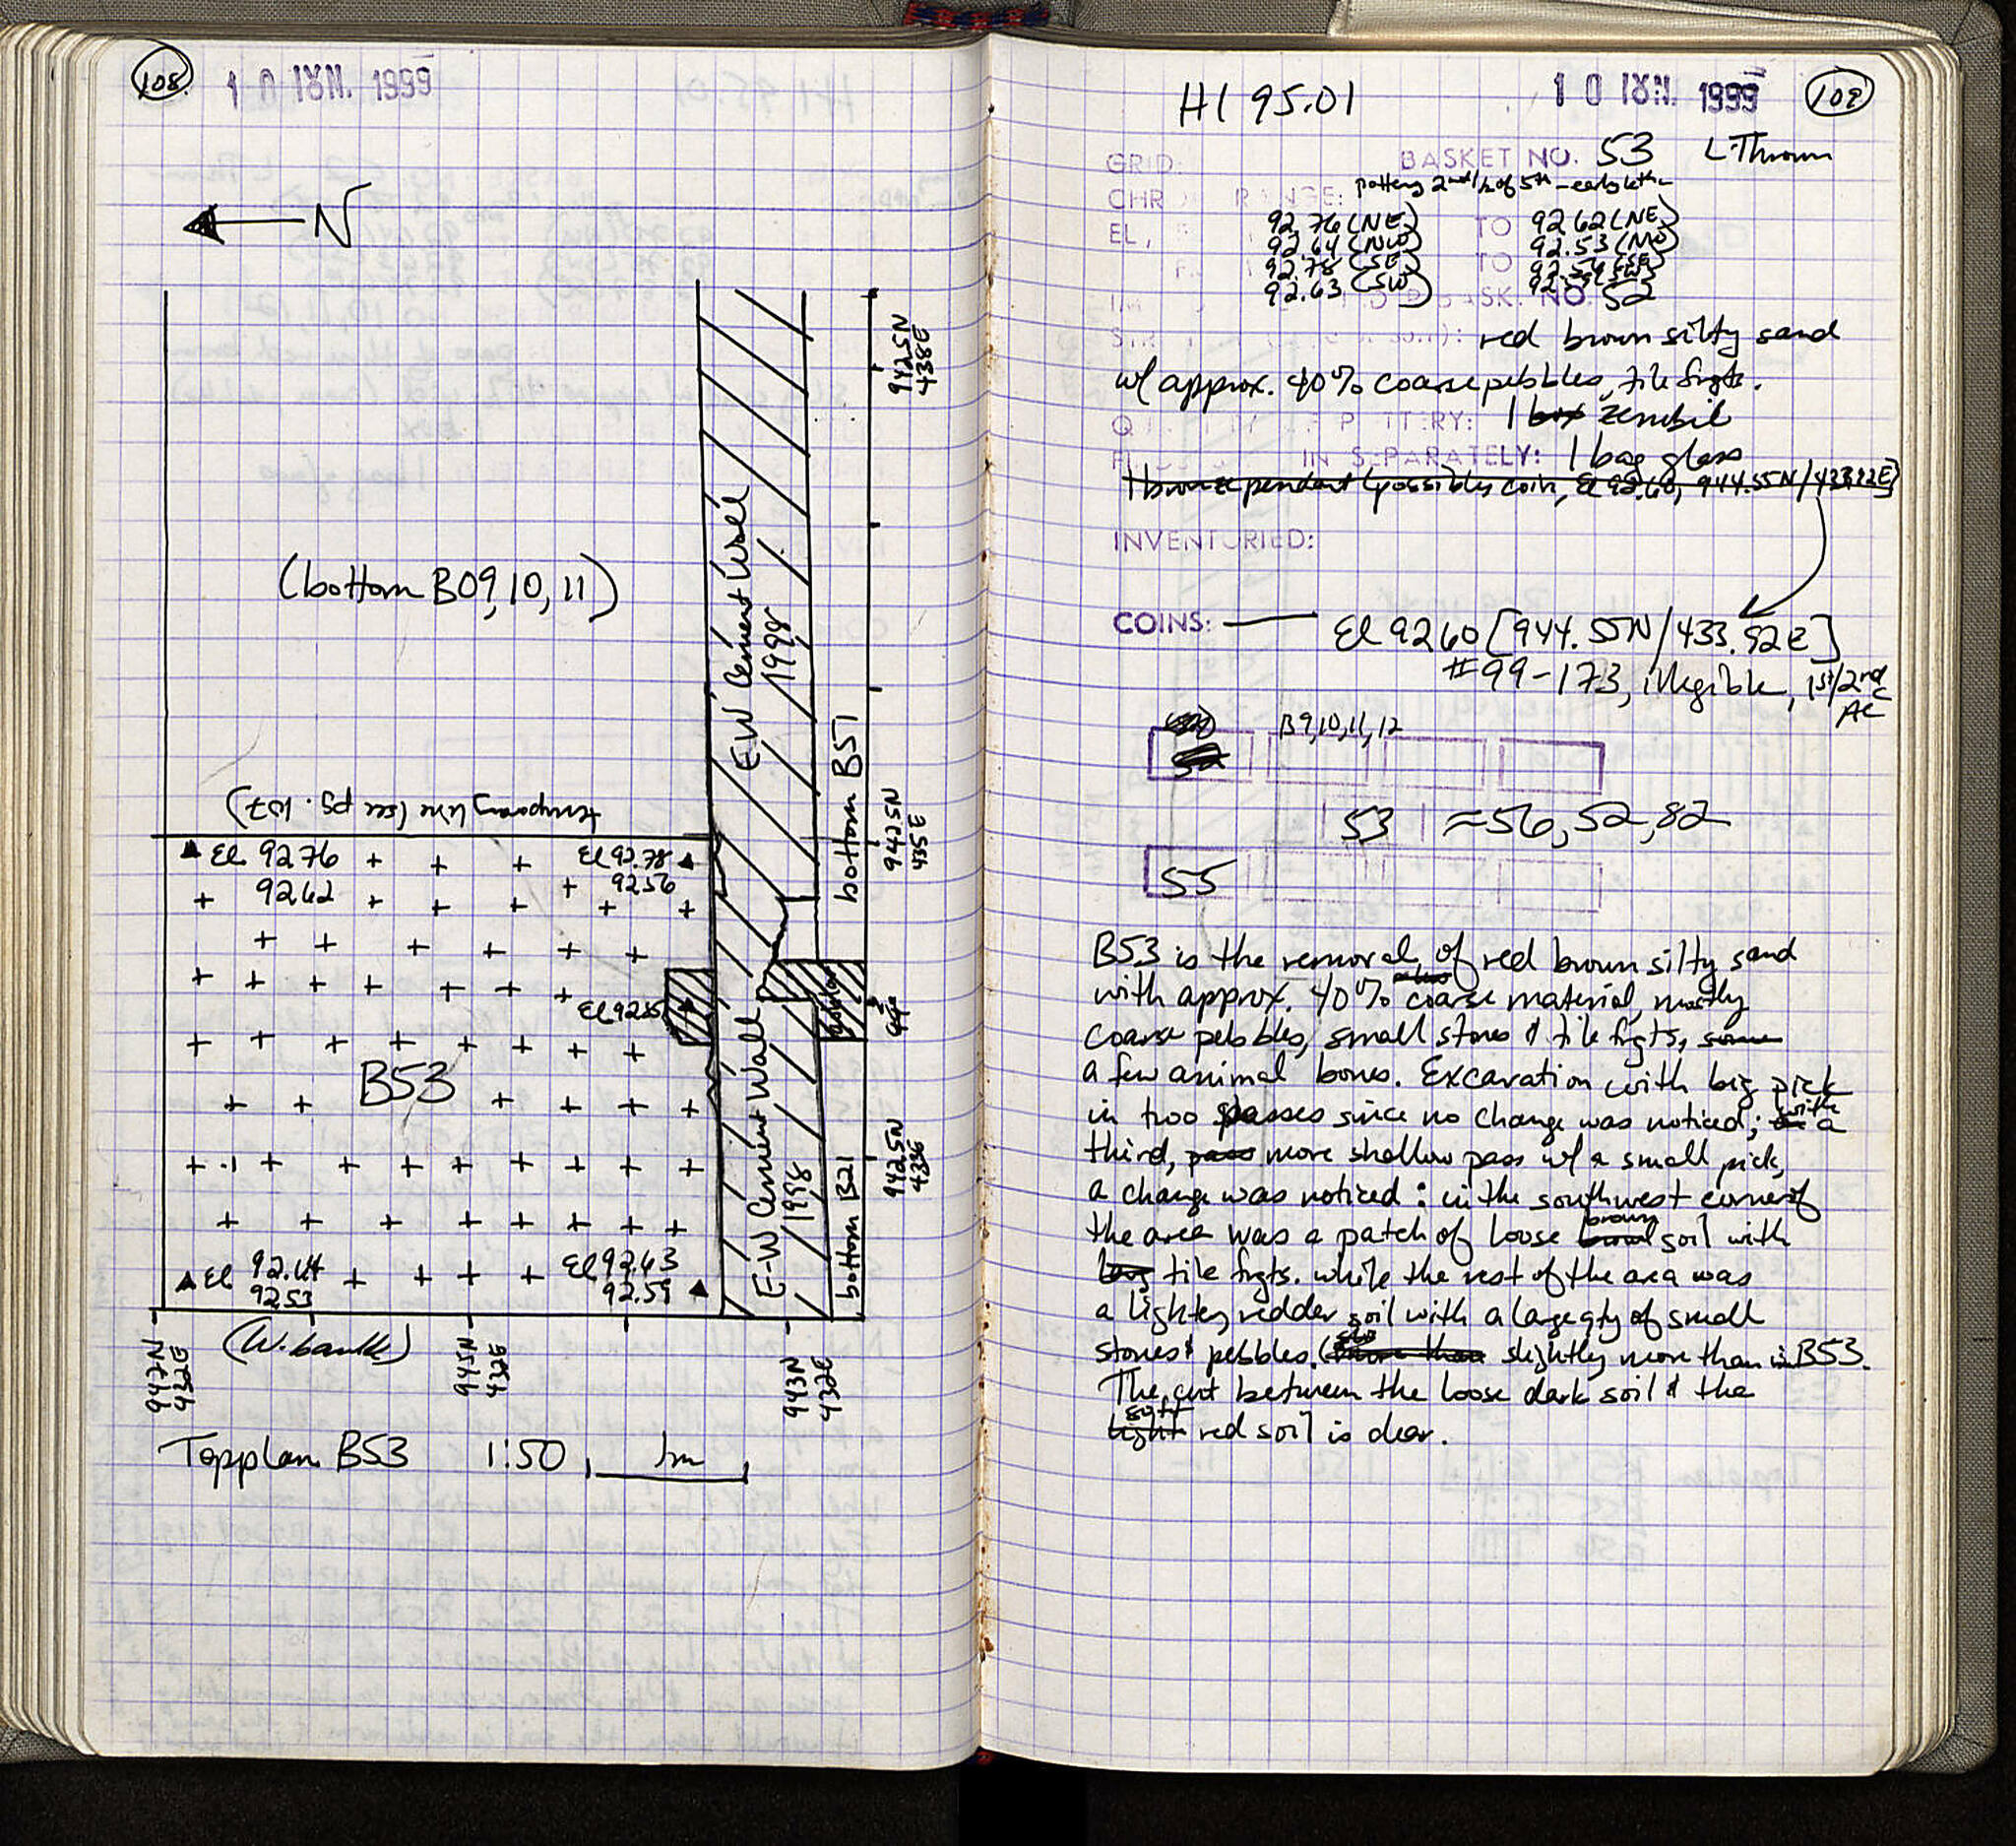 108
10 ΙΟΥΝ. 1999
N
(bottom B09, 10, 11)
942.5N
438E
E-W Cement Wall
1998
bottom B51
temporary line (see pg. 107)
942.5N
435E
El 92.76
92.62
El 92.78
92.56
El 92.55
B53
E-W Cement Wall
1998
bottom B21
942.5N
433E
El 92.64
92.53
El 92.63
92.59
947N
432E
(W. baulk)
945N
432E
943N
432E
Top plan B53 1:50 1m
H1 95.01
10 ΙΟΥΝ. 1999
109
GRID: BASKET NO. 53 L. Thrown
CHRO RANGE: pottery 2nd 1/2 of 5th - early 6th c
EL, 92.76 (NE) TO 92.62 (NE)
92.64 (NW) 92.53 (NW)
92.78 (SE) TO 92.56 (SE)
92.63 (SW) 92.59 (SW)
ASK. NO. 52
red brown silty sand
w/ approx. 40% coarse pebbles, tile frgts.
TTERY: 1 box zembil
IN SEPARATELY: 1 bag glass
1 bronze pendent (possibles coin, El 92.60, 944.55N/433.92E)
INVENTORIED:
COINS: El 92.60 [944.55N/433.92E]
#99-173, illegible, 1st/2nd c
AC
B9,10,11,12
52
53 ≈56, 52, 82
55
B53 is the removal of red brown silty sand
with approx. 40% coarse material, mostly
coarse pebbles, small stones & tile frgts, some
a few animal bones. Excavation with big pick
in two passes since no change was noticed; with a
third, pass more shallow pass w/ a small pick,
a change was noticed: in the southwest corner of
the area was a patch of loose brown soil with
tile frgts. while the rest of the area was
a lighter, redder soil with a large qty of small
stones & pebbles, (more than slightly more than in B53.
The cut between the loose dark soil & the
light soft red soil is clear.